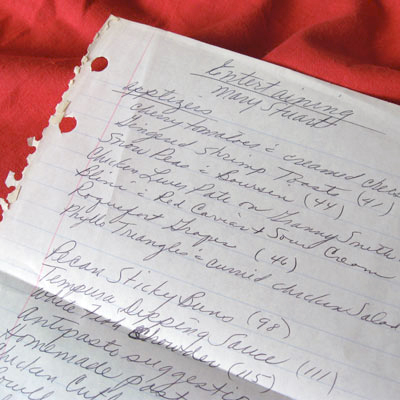 Entertaining
Mary Stuart
Appetizers
Cherry Tomatoes & creamed cheese
Gingered Shrimp Toast (41)
Snow Peas & Boursin (44)
Chicken Liver Pate on Granny Smith
Blini & Red Caviar & Sour Cream
Roquefort Grapes (46)
Phyllo Triangles & curried chicken Salad
Pecan Sticky Buns (98)
Tempura Dipping Sauce (111)
White Fish Chowder (115)
Antipasto suggestio
Homemade past
Chicken Cutl